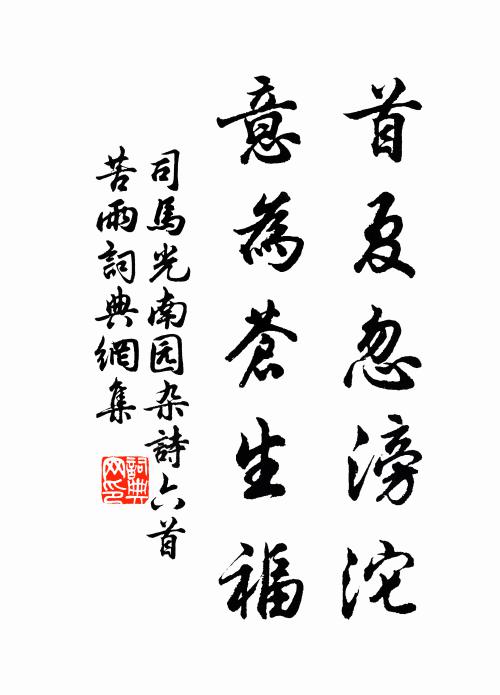 首夏忽滂沱
意為蒼生福
司馬光南园杂詩六首
苦雨詞典網集
詞典网印